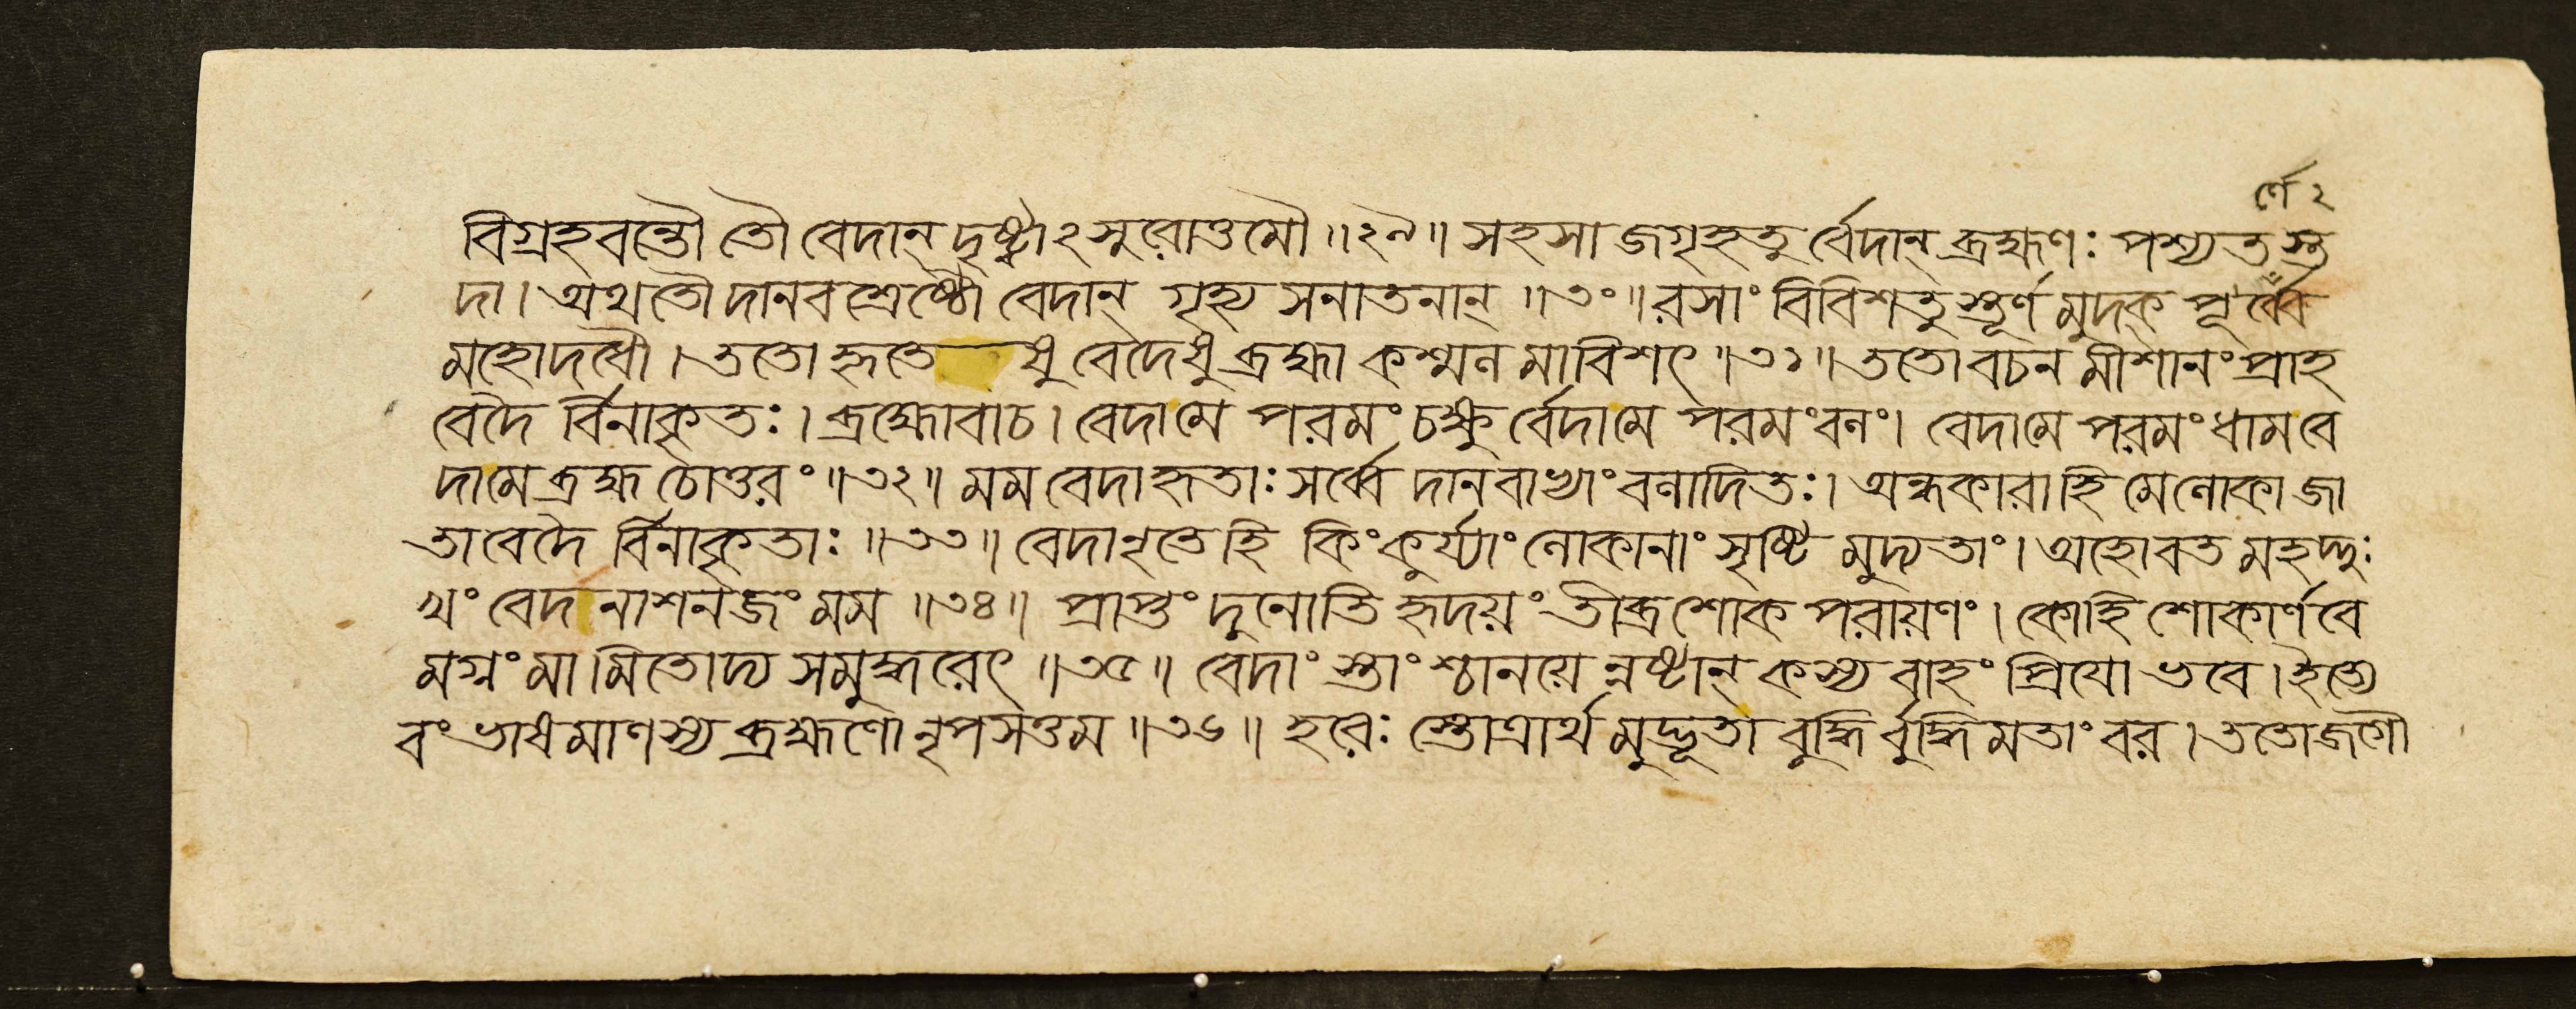 র্ণে ২
বিগ্রহবন্তৌ তৌ বেদান্ দৃষ্ট্বাঽসুরোত্তমৌ ॥২৯॥ সহসা জগৃহতুর্বেদান্ ব্রহ্মণঃ পশ্যতস্ত
দা। অথ তৌ দানবশ্রেষ্ঠৌ বেদান্ গৃহ্য সনাতনান্ ॥৩০॥ রসাং বিবিশতুস্তূর্ণমুদক্ পূর্ব্বে
মহোদধৌ। ততো হৃতেষু বেদেষু ব্রহ্মা কশ্মলমাবিশৎ ॥৩১॥ ততো বচনমীশানং প্রাহ
বেদৈর্বিনাকৃতঃ। ব্রহ্মোবাচ। বেদা মে পরমং চক্ষুর্বেদা মে পরমং বলং। বেদা মে পরমং ধাম বে
দা মে ব্রহ্ম চোত্তরং ॥৩২॥ মম বেদা হৃতাঃ সর্ব্বে দানবাভ্যাং বলাদিতঃ। অন্ধকারা হি মে লোকা জা
তা বেদৈর্বিনাকৃতাঃ ॥৩৩॥ বেদানৃতে হি কিং কুর্য্যাং লোকানাং সৃষ্টিমুদ্যতাং। অহো বত মহদ্দুঃ
খং বেদনাশনজং মম ॥৩৪॥ প্রাপ্তং দুনোতি হৃদয়ং তীব্রশোকপরায়ণং। কো হি শোকার্ণবে
মগ্নং মামিতোদ্য সমুদ্ধরেৎ ॥৩৫॥ বেদাংস্তাংশ্চানয়েন্নষ্টান্ কস্য বাহং প্রিযো ভবে। ইত্যে
বং ভাষমাণস্য ব্রহ্মণো নৃপসত্তম ॥৩৬॥ হরেঃ স্তোত্রার্থমুদ্ভূতা বুদ্ধির্বুদ্ধিমতাং বর। ততো জগৌ